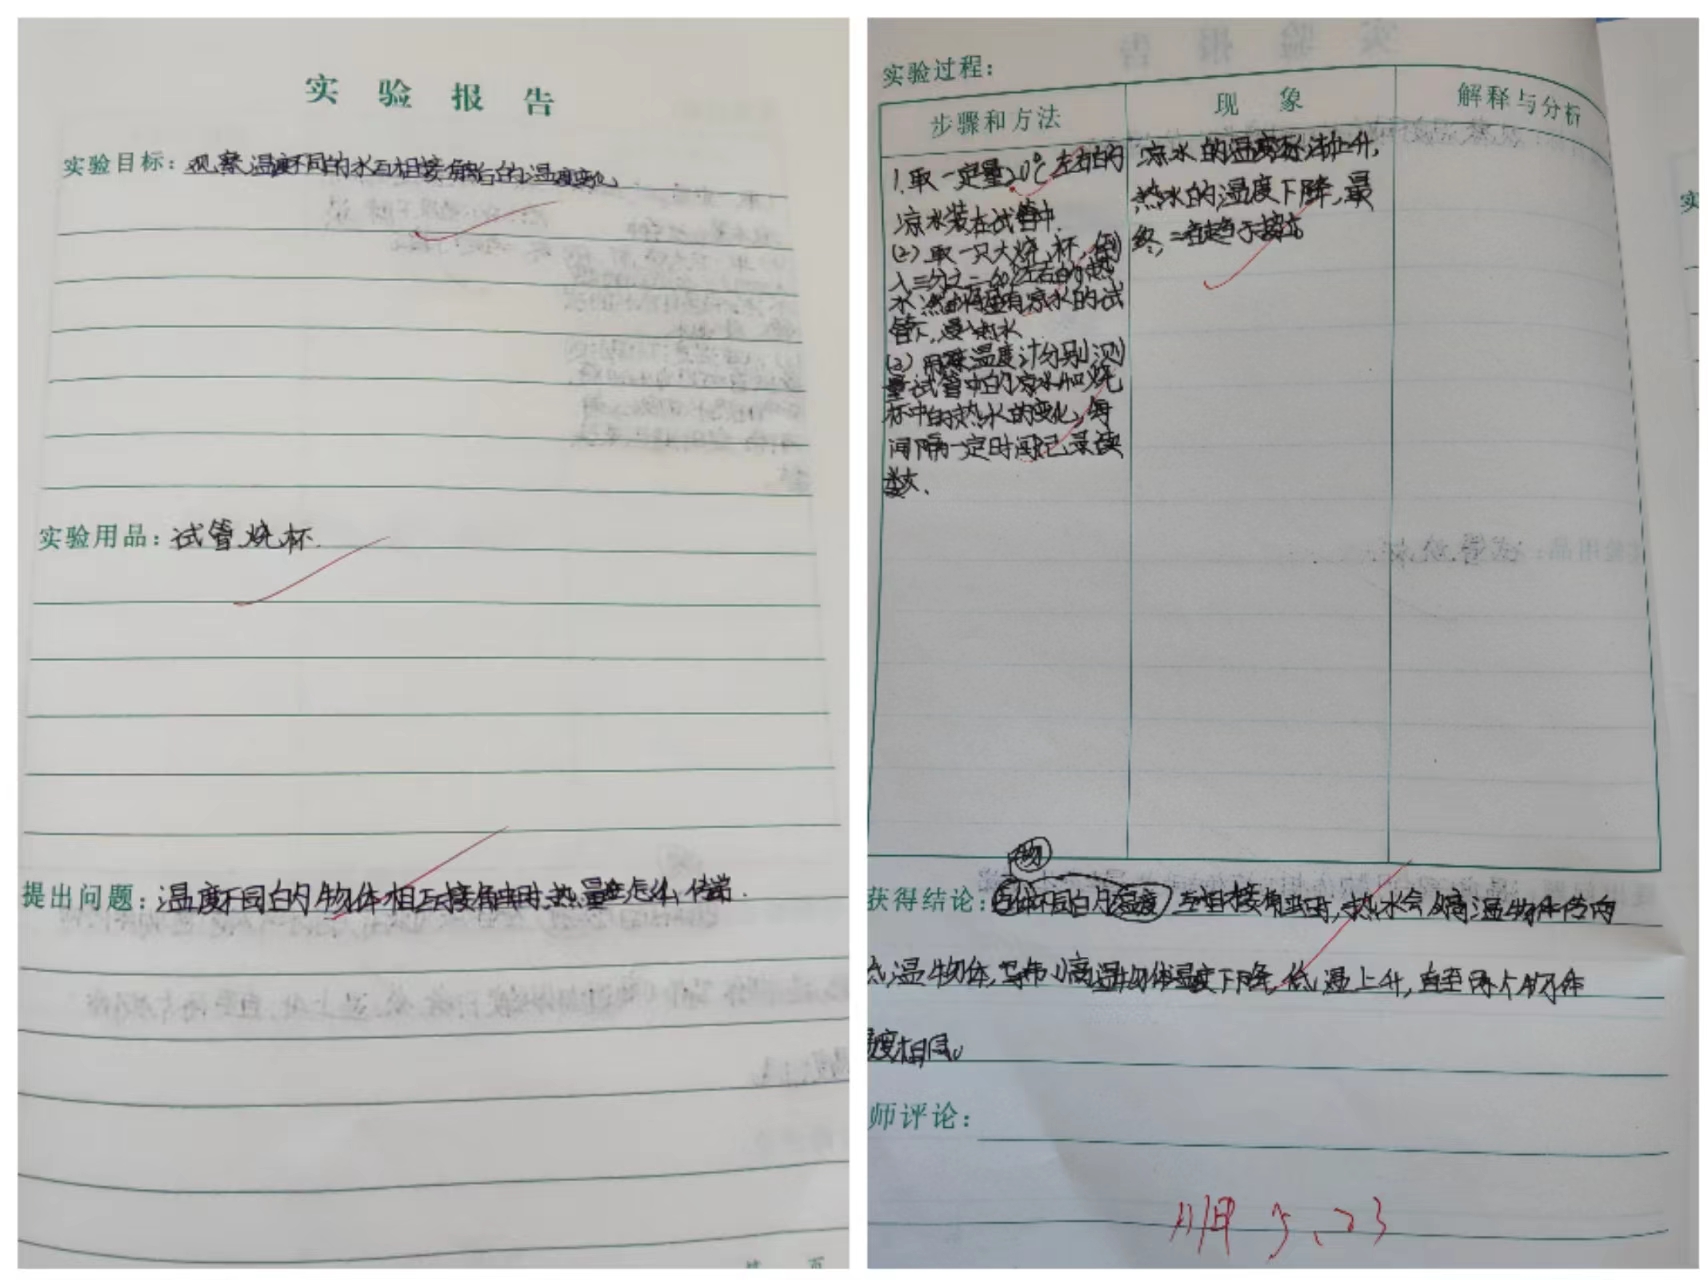 实 验 报 告
实验目标：观察温度不同的水互相接触后的温度变化
实验用品：试管 烧杯.
提出问题：温度不同的物体相互接触时,热量怎么传递.
实验过程：
步骤和方法
现 象
解释与分析
1.取一定量20℃左右的
凉水装在试管中.
(2)取一只大烧杯,倒
入三分之二60℃左右的热
水,然后将盛有凉水的试
管 浸入热水
(3)用 温度计分别测
量试管中的凉水和烧
杯中的热水的变化,每
间隔一定时间记录读
数.
凉水的温度 上升,
热水的温度下降,最
终,二者趋于
物
获得结论： 不同的温度 互相接触时,热水会从高温物体传向
低温物体,导 高温物体温度下降,低温上升,直至两个物体
温度相同。
师评论：
5.23